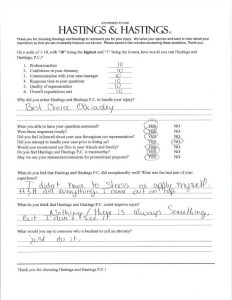 HASTINGS & HASTINGS
Thank you for choosing Hastings and Hastings to represent you for your injury. We value your opinion and want to hear about your
experience so that we can constantly improve our service. Please spend a few minutes answering these questions. Thank you.
On a scale of 1-10, with "10" being the highest and "1" being the lowest, how would you rate Hastings and
Hastings, P.C.?
1. Professionalism 10
2. Confidence in your Attorney
3. Communication with your case manager 10
4. Response time to your questions 10
5. Quality of representation 10
6. Overall expectations met 10
Why did you select Hastings and Hastings P.C. to handle your injury?
Best Choice Obviously
Were you able to have your questions answered? YES NO
Were those responses timely? YES NO
Did you feel informed about your case throughout our representation? YES NO
Did you attempt to handle your case prior to hiring us? YES NO
Would you recommend our firm to your friends and family? YES NO
Do you feel Hastings and Hastings P.C. is trustworthy? YES NO
May we use your statements/comments for promotional purposes? YES NO
What do you feel that Hastings and Hastings P.C. did exceptionally well? What was the best part of your
experience?
I didn't have to stress or apply myself.
H&H did everything. I came out on top
What do you think that Hastings and Hastings P.C. could improve upon?
Nothing/there is always something.
But I don't see it
What would you say to someone who is hesitant to call an attorney?
Just do it.
Thank you for choosing Hastings and Hastings P.C.!